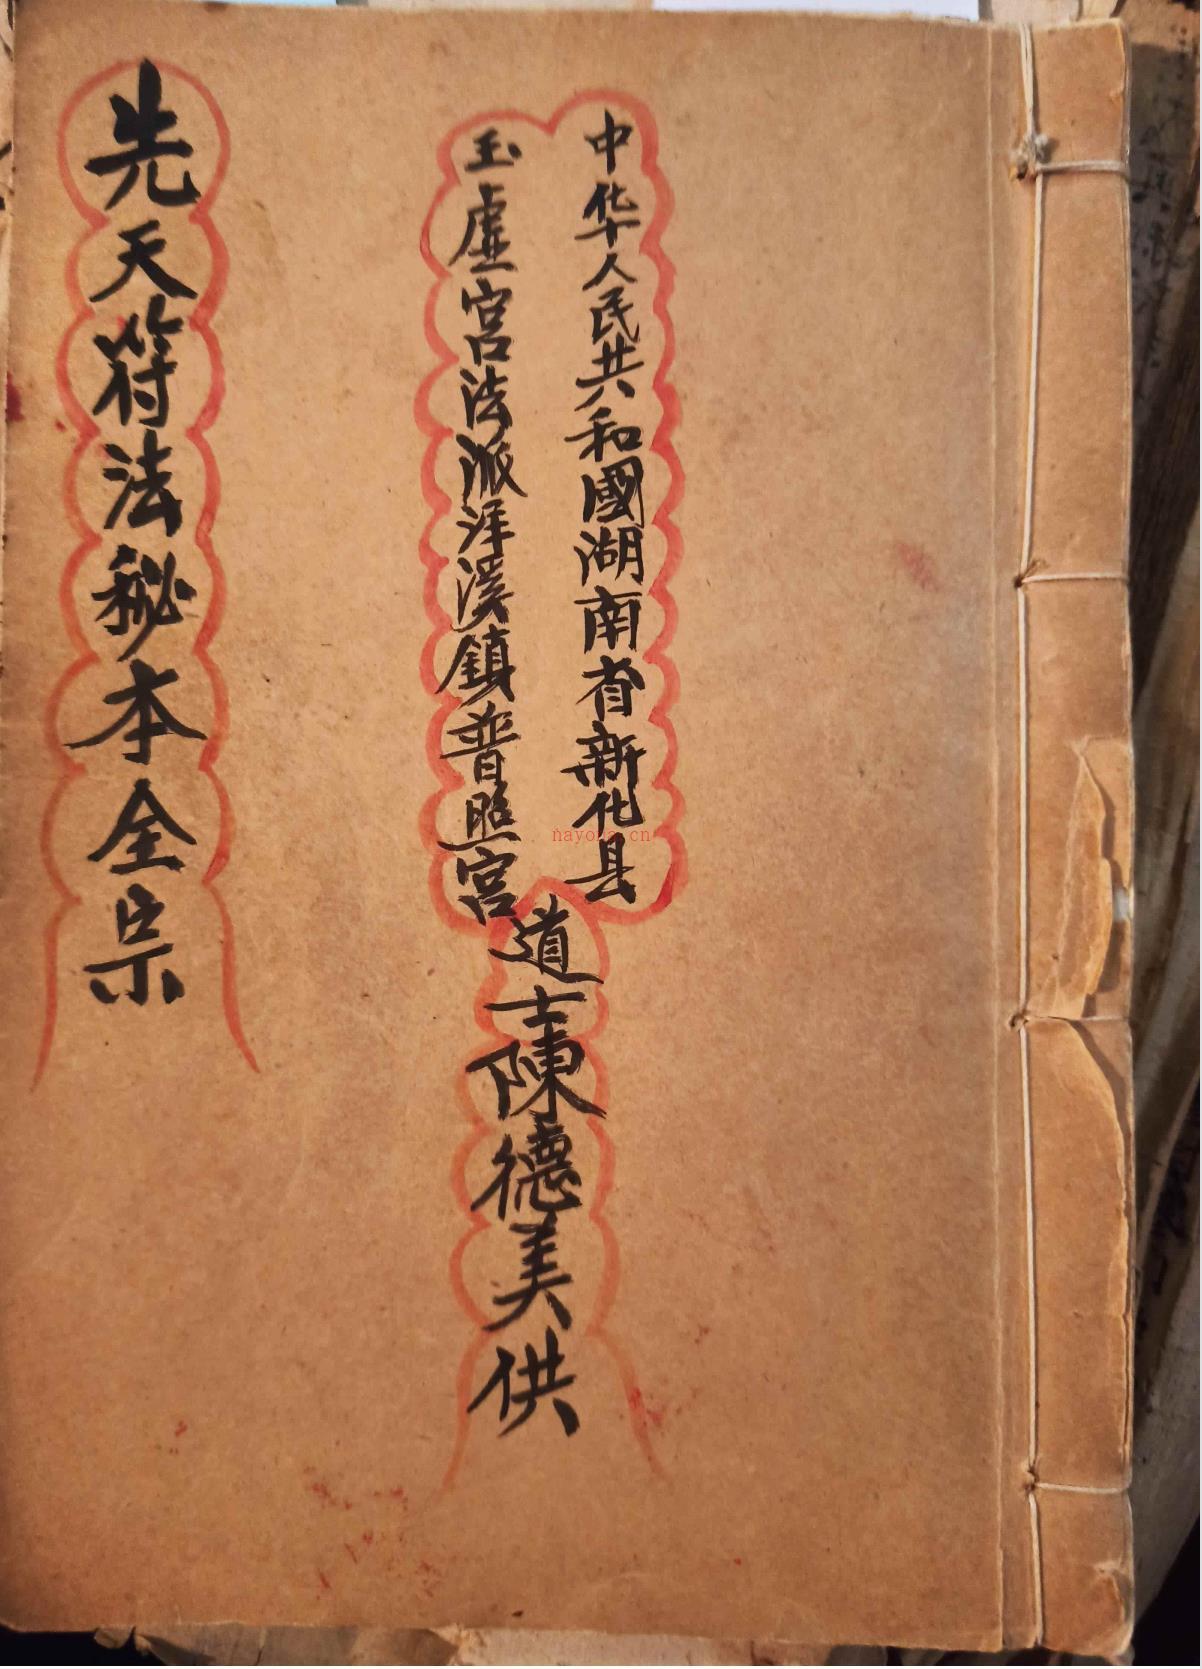 中华人民共和國湖南省新化县
玉虚宫法派洋溪鎮普照宫
道士陳德美供
先天符法秘本全宗
nayona.cn